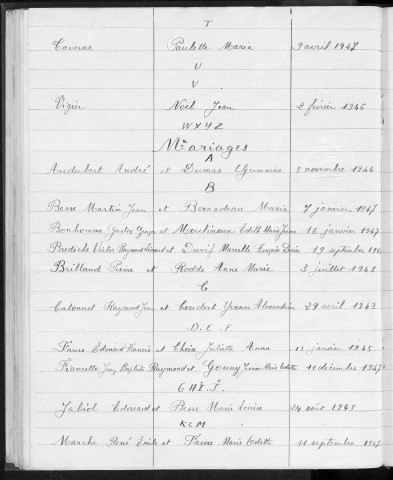 T
Taverne Paulette Maria 9 avril 1947
U
V
Vigier Noël Jean 2 février 1946
WXYZ
Mariages
A
Audubert André et Dumas Germaine 8 novembre 1944
B
Besse Martin Jean et Bernadeau Maria 7 janvier 1947
Bonhomme Gaston Georges et Moulinoux Edith Marie 16 janvier 1947
Bredèche Victor Raymond et Durif Marcelle 19 septembre
Brillaud Pierre et Rodde Anne Marie 3 juillet 1948
C
Catonnet Raymond Jean et Coudert Yvonne Alexandrine 29 avril 1943
D.E.F
Faure Edouard Francis et Chèix Juliette Anna 12 janvier 1945
Jean Baptiste Raymond et Gouny 11 décembre 1947
G H I. J.
Jabiol Edouard et Besse Marie Louise 24 août 1948
KLM
Marche René Emile et Faure Marie Odette 11 septembre 1947